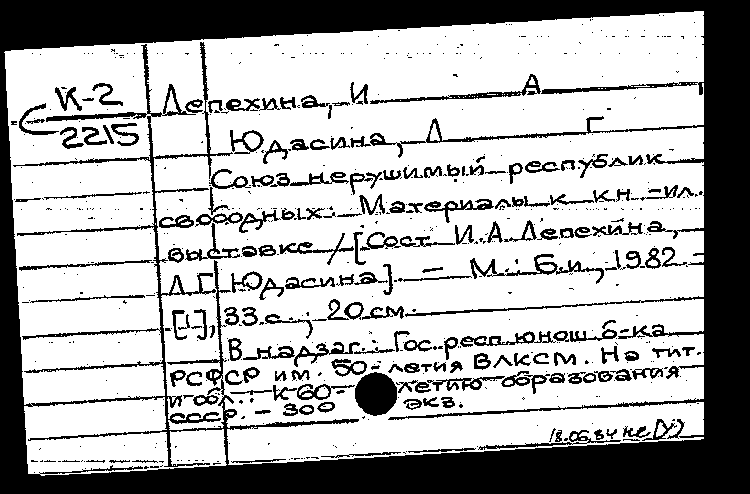 К-2
С 2215
Лепехина, И А
Юдасина, Л Г
Союз нерушимый республик
свободных: Материалы к кн.-ил.
выставке / [Сост. И.А. Лепехина,
Л.Г. Юдасина]. — М.: Б.и., 1982 –
[1], 33 с.; 20 см.
В надзаг.: Гос. респ. юнош. б-ка
РСФСР им. 50-летия ВЛКСМ. На тит.
и обл.: К 60-летию образования
СССР. — 300 экз.
18.06.84